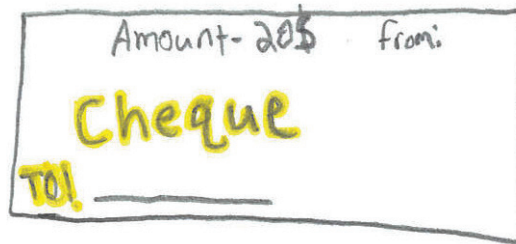 Amount- 20$ from:
Cheque
TO! ________